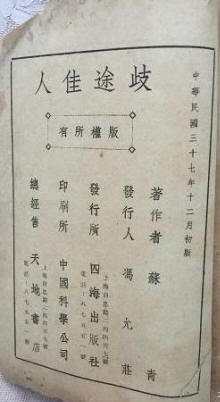 歧途佳人
版權所有
中華民國三十七年十二月初版
著作者 蘇青
發行人 馮允莊
發行所 四海出版社
印刷所 中國科學公司
總經售 天地書店